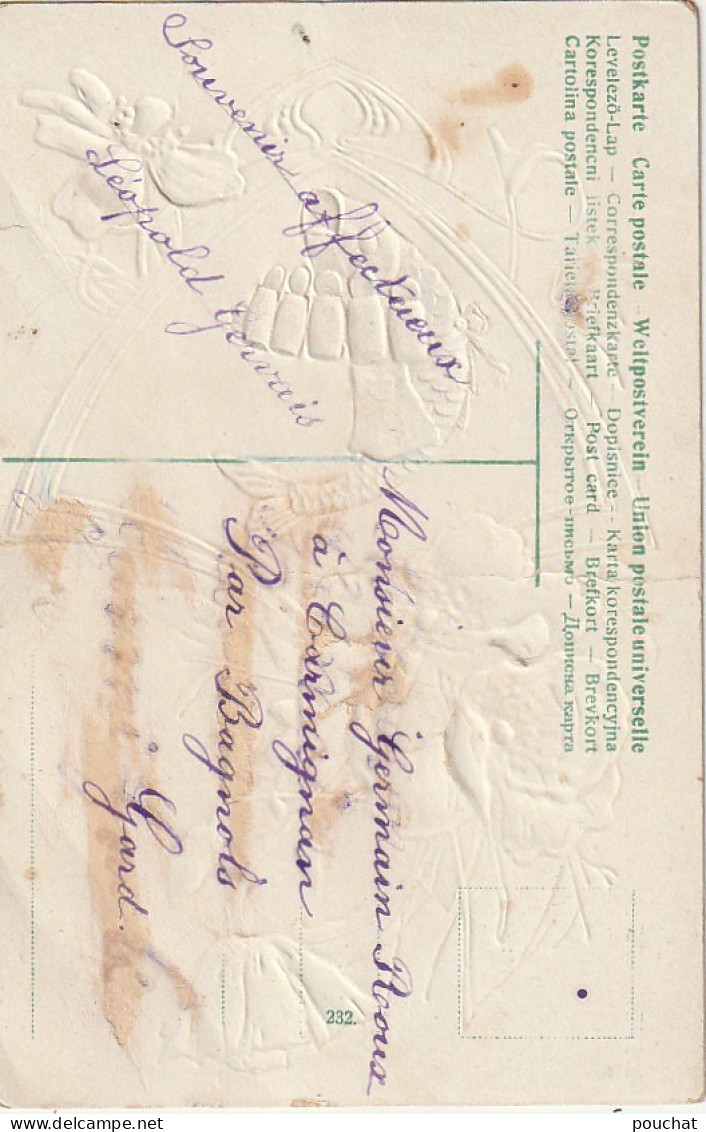 Postkarte Carte postale – Weltpostverein – Union postale universelle
Levelező-Lap – Correspondenzkarte – Dopisnice – Karta korespondencyjna
Korespondencni listek – Briefkaart – Post card – Brefkort – Brevkort
Cartolina postale – Tarjeta postal – Открытое-письмо – Дописна карта
Souvenir affectueux
Léopold Gervais
Monsieur Germain Roux
à Carmignan
Par Bagnols
Gard.
232.
© pouchat